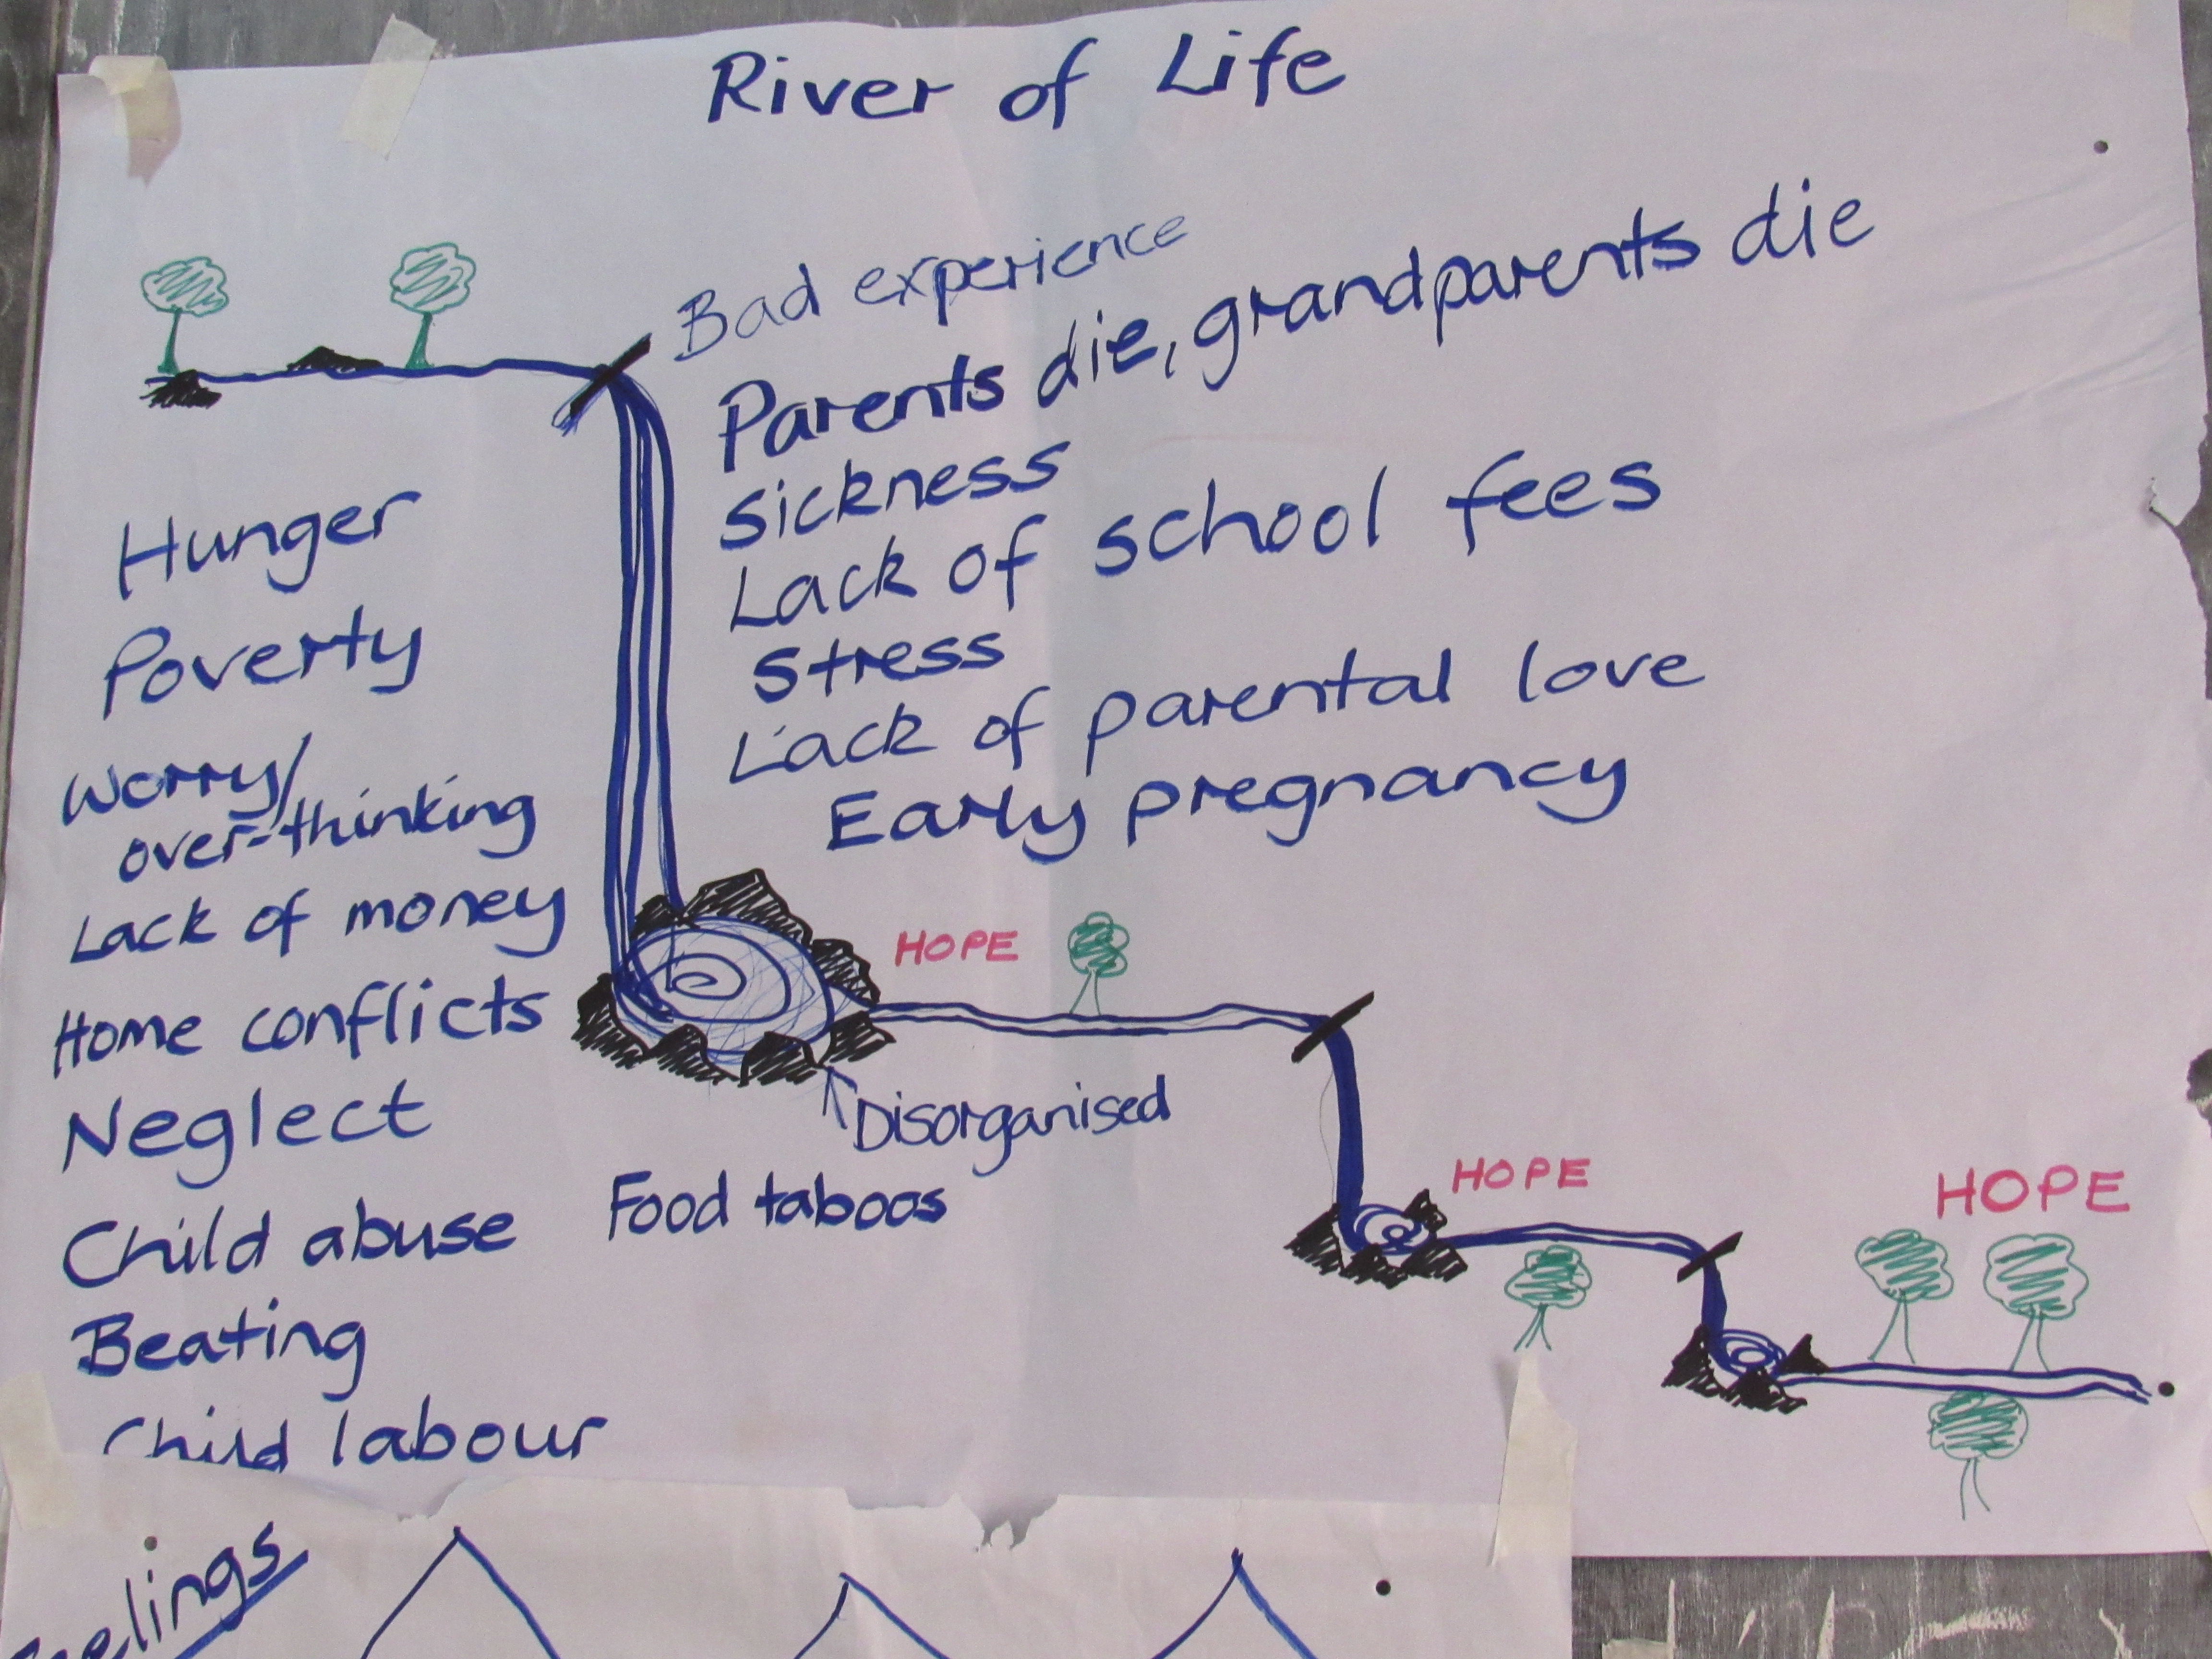 River of Life
Bad experience
Parents die, grandparents die
Sickness
Lack of school fees
Stress
Lack of parental love
Early pregnancy
Hunger
Poverty
Worry/
over-thinking
Lack of money
Home conflicts
Neglect
Child abuse
Beating
Child labour
HOPE
Disorganised
Food taboos
HOPE
HOPE